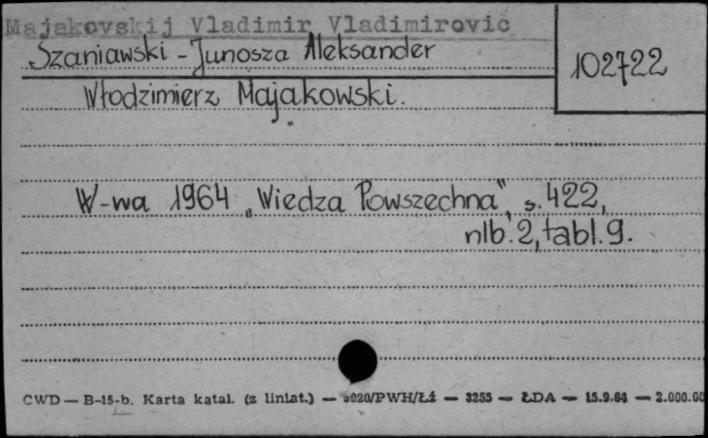 Majakovskij Vladimir Vladimirovic
Szaniawski - Junosza Aleksander
102722
Włodzimierz Majakowski.
W-wa 1964 „Wiedza Powszechna", s. 422,
nlb. 2, tabl. 9.
CWD — B-15-b. Karta katal. (z liniat.) — 5020/PWH/Łź — 3255 — ŁDA — 15.9.64 — 2.000.00